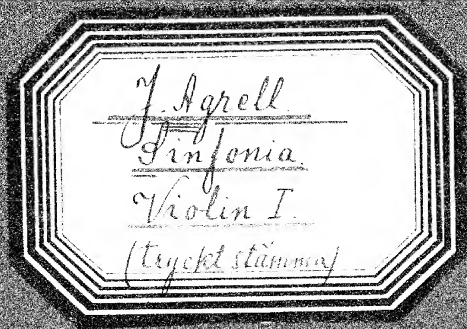 J. Agrell.
Sinfonia.
Violin I.
(tryckt stämma)